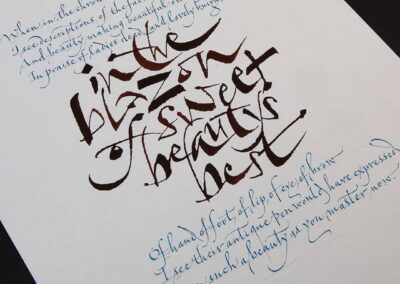 When in the chron
I see descriptions of the fair
And beauty making beautiful old
In praise of ladies dead and lovely knigh
in the
blazon
of sweet
beauty's
best
Of hand of foot of lip of eye of brow
I see their antique pen would have expressed
such a beauty as you master now.